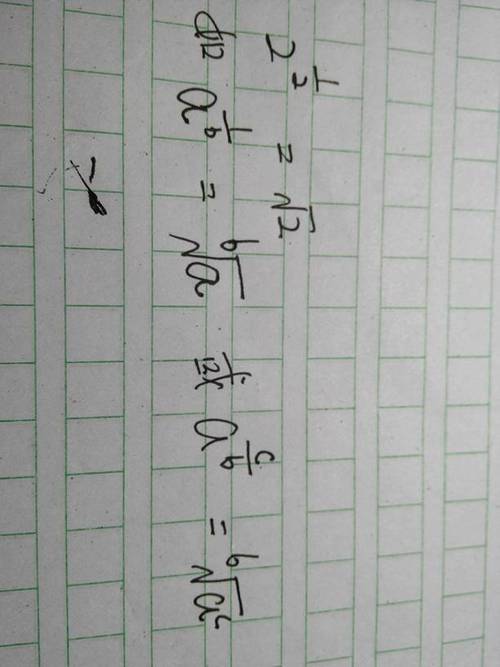 2^(1/2) = √2
a^(1/b) = ᵇ√a a^(c/b) = ᵇ√aᶜ